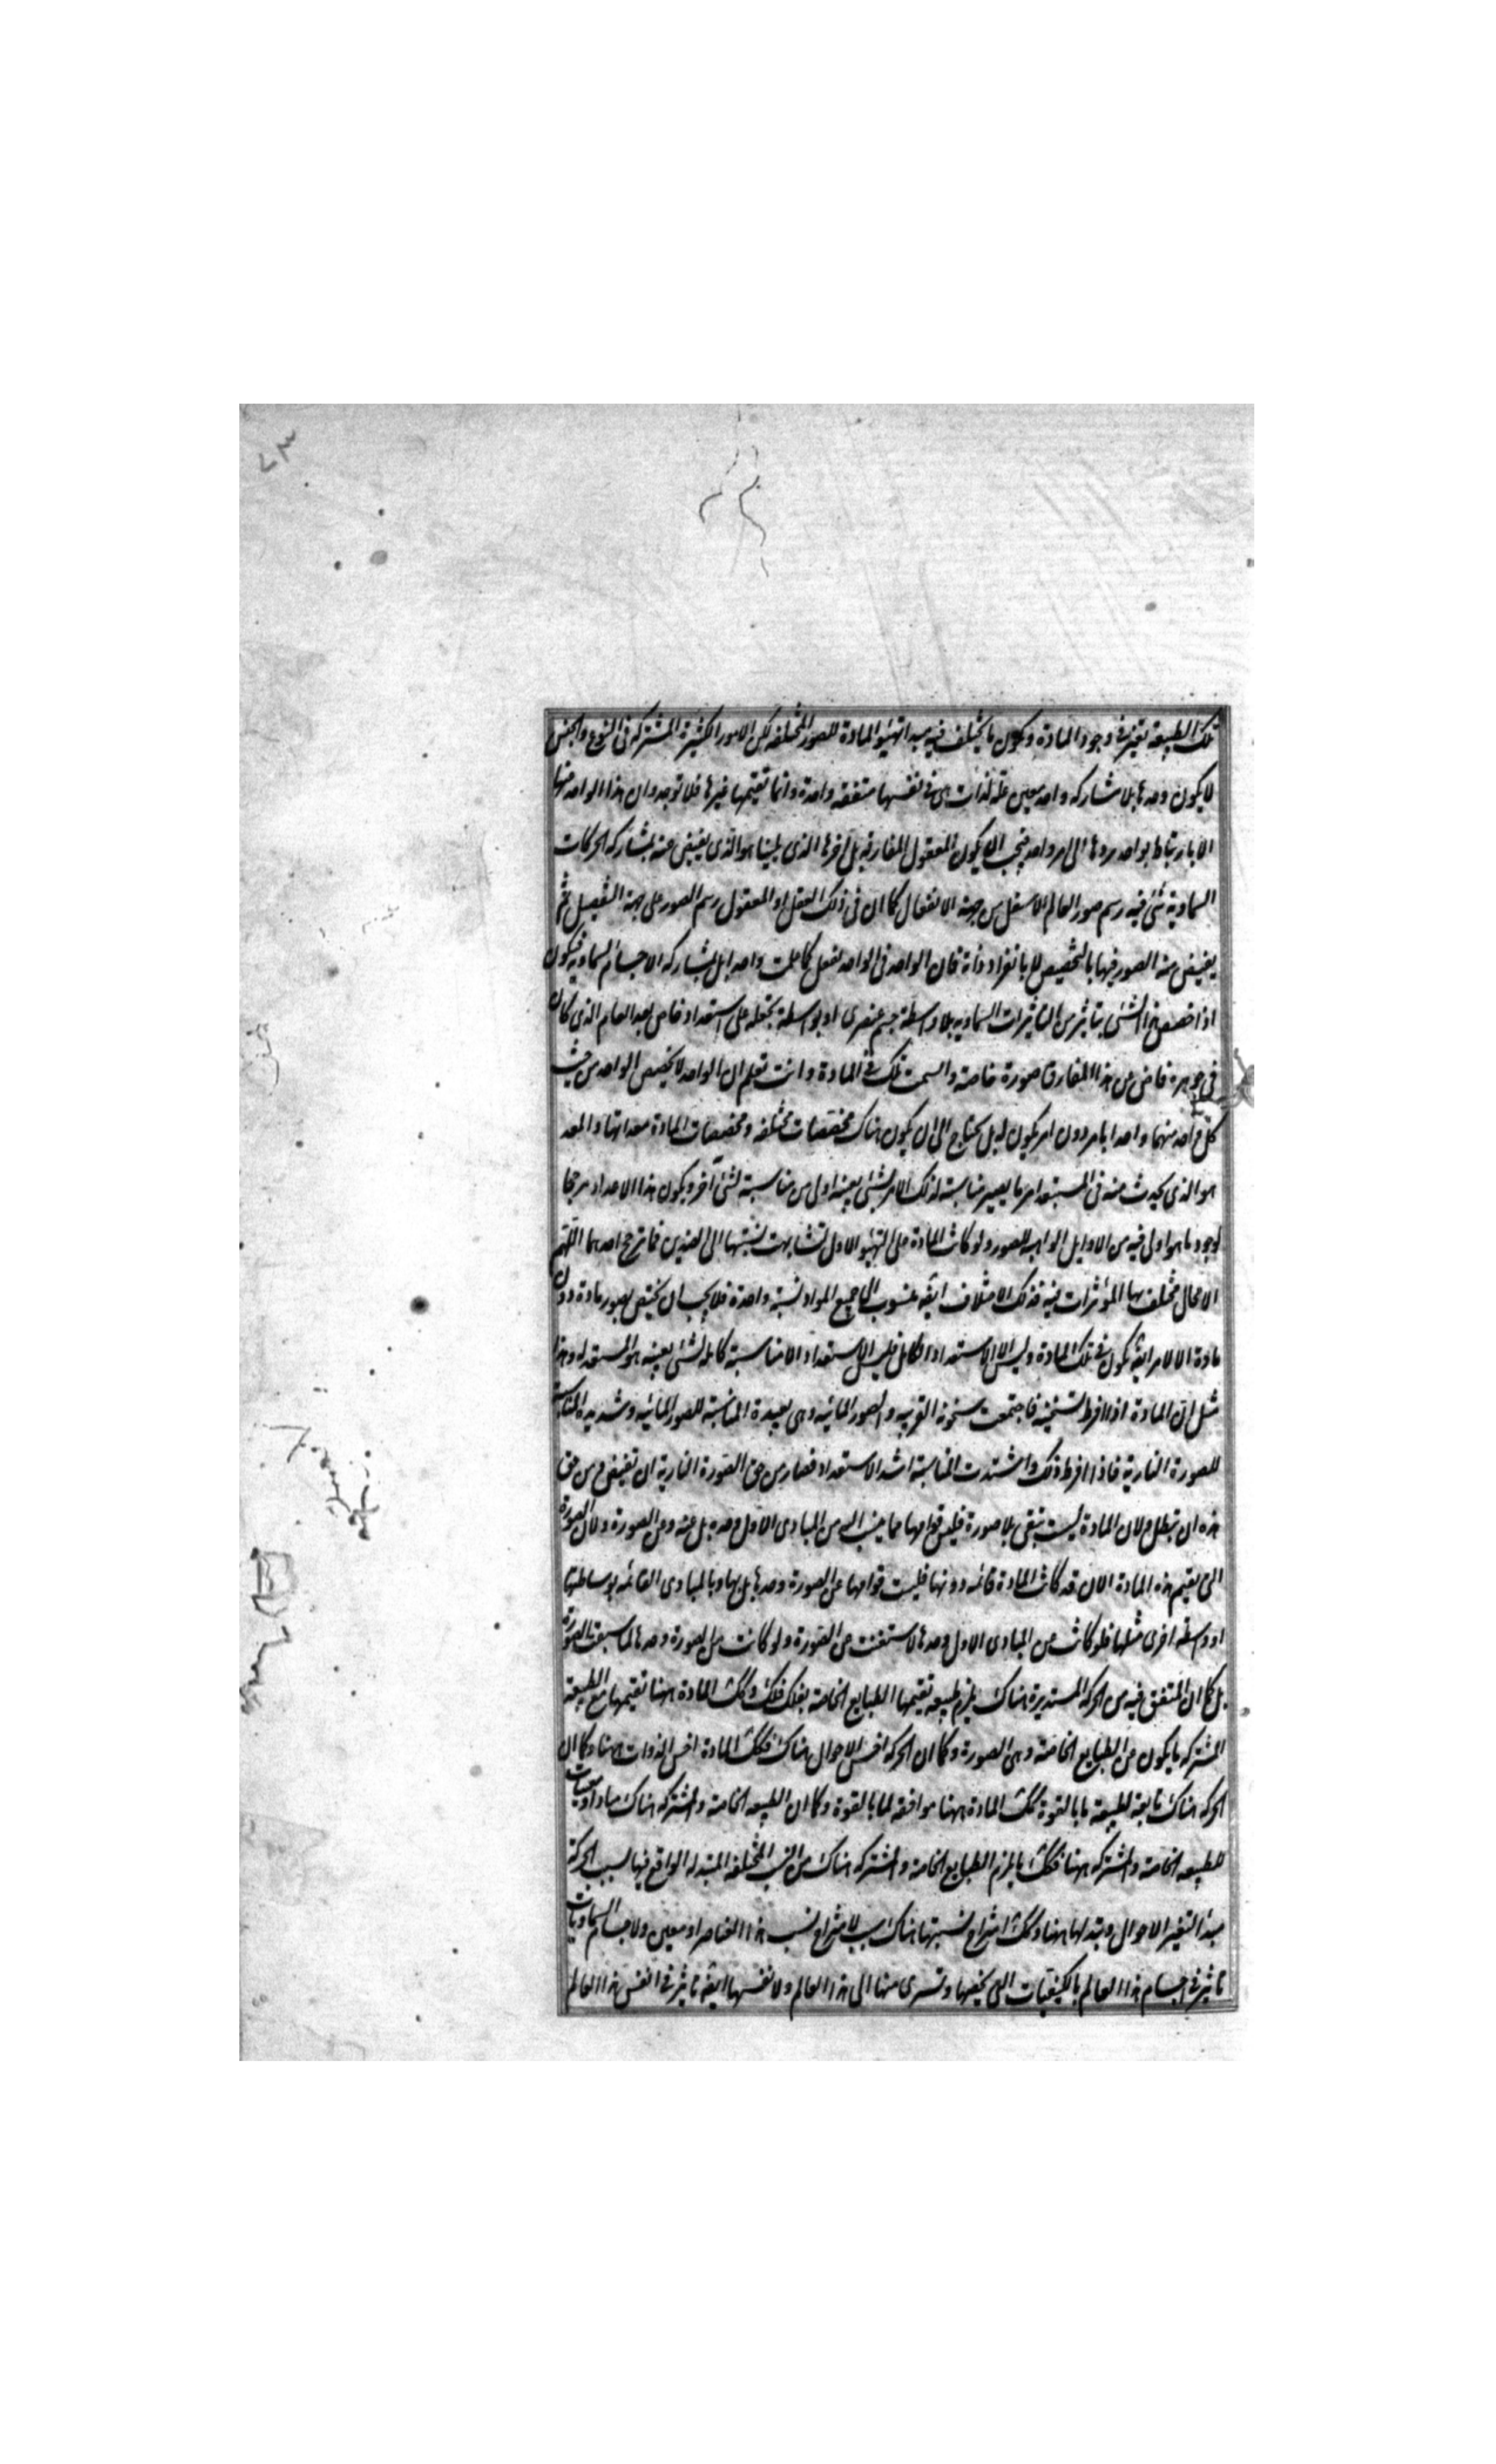 تلك الطبيعة تعين في وجود المادة ويكون ما يختلف فيه مبدأ تهيئو المادة للصور المختلفة لكن الامور الكثيرة المشتركة في النوع والجنس
لا يكون وحدها بلا مشاركة واحد معين علة لذات هي في نفسها متفقة واحدة وانما تقيمها غيرها فلا توجد ان هذا الواحد منها
الا بارتباط بواحد يردها الى امر واحد فيجب ان يكون العقول المفارقة بل آخرها الذي يلينا هو الذي يفيض عنه بمشاركة الحركات
السماوية شئ فيه رسم صور العالم الاسفل من جهة الانفعال كما ان في ذلك العقل او العقول رسم الصور على جهة التفصيل ثم
يفيض منه الصور فيها بالتخصيص لا بانفراد ذاته فان الواحد في الواحد يفعل كما علمت واحدا بل بمشاركة الاجسام السماوية فيكون
اذا خصص هذا الشئ بتاثير من التاثيرات السماوية بلا واسطة جسم عنصري او بواسطة يجعله على استعداد خاص بعد العام الذي كان
في جوهره فاض عن هذا المفارق صورة خاصة وارتسمت تلك في المادة وانت تعلم ان الواحد لا يخصص الواحد من حيث
كل واحد منهما واحدا بامر دون امر يكون له بل يحتاج الى ان يكون هناك مخصصات مختلفة ومخصصات المادة معداتها والمعد
هو الذي يحدث منه في المستعد امر ما يصير مناسبته لذلك الامر لشئ بعينه اولى من مناسبته لشئ آخر ويكون هذا الاعداد مرجحا
لوجود ما هو اولى فيه من الاوايل الواهبة للصور ولو كانت المادة على التهيؤ الاول تشابهت نسبتها الى الضدين فما ترجح احدهما اللهم
الا بحال مختلف بها المؤثرات فيه فذلك الاختلاف ايضه منسوب الى جميع المواد نسبة واحدة فلا يجب ان يختص بصور مادة دون
مادة الا لامر ايضه يكون في تلك المادة وليس الا الاستعداد الكامل فليس الاستعداد الا مناسبة كاملة لشئ بعينه هو المستعد له وهذا
مثل ان المادة اذا افرط تسخينه فاجتمعت سخونة الغريبة والصور المائية وهى بعيدة المناسبة للصور المائية وشديدة المناسبة
للصورة النارية فاذا افرط ذلك واشتدت المناسبة اشتد الاستعداد فصار من حق الصورة النارية ان تفيض ومن حق
هذه ان تبطل ولان المادة ليست تبقى بلا صورة فليس قوامها عما ينسب اليه من المبادى الاول وحده بل عنه وعن الصورة ولان الصورة
التي يقيم هذه المادة الان قد كانت المادة قائمة دونها فليست قوامها عن الصورة وحدها بل بها وبالمبادى القائمة بوساطتها
او واسطة اخرى مثلها فلو كانت من المبادى الاول وحدها لاستغنت عن الصورة ولو كانت من الصورة وحدها لما سبقت الصورة
بل كما ان المتفق فيه من الحركة المستديرة هناك يلزم طبيعة تقيمها الطبايع الخاصة بفلك فلك وكك المادة ههنا تقيمها مع الطبيعة
المشتركة ما يكون عن الطبايع الخاصة وهى الصورة وكما ان الحركة اخس الاحوال هناك فكك المادة اخس الذوات ههنا وكما ان
الحركة هناك تابعة لطبيعة ما بالقوة كك المادة ههنا موافقة لما بالقوة وكما ان الطبيعة الخاصة والمشتركة هناك مباد او معينات
للطبيعة الخاصة والمشتركة ههنا فكك ما يلزم الطبايع الخاصة والمشتركة هناك من النسب المختلفة المتبدلة الواقع فيها بسبب الحركة
مبدأ لتغير الاحوال وتبدلها ههنا وكك امتزاج نسبتها هناك سبب لامتزاج نسب هذا العناصر او معين ولاجسام السماويات
تاثير في اجسام هذا العالم بالكيفيات التي يخصها وتسرى منها الى هذا العالم ولانفسها ايضه تاثير في انفس هذا العالم